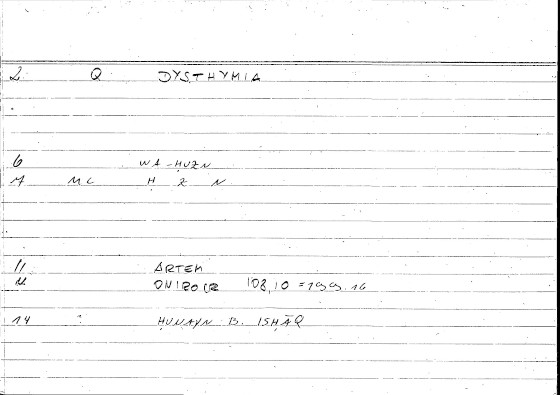 2 Q DYSTHYMIA
6 WA-ḤUZN
7 MC Ḥ Z N
11 ARTEM
ONIROCR 108,10 = 199.16
14 ḤUNAYN B. ISḤĀQ